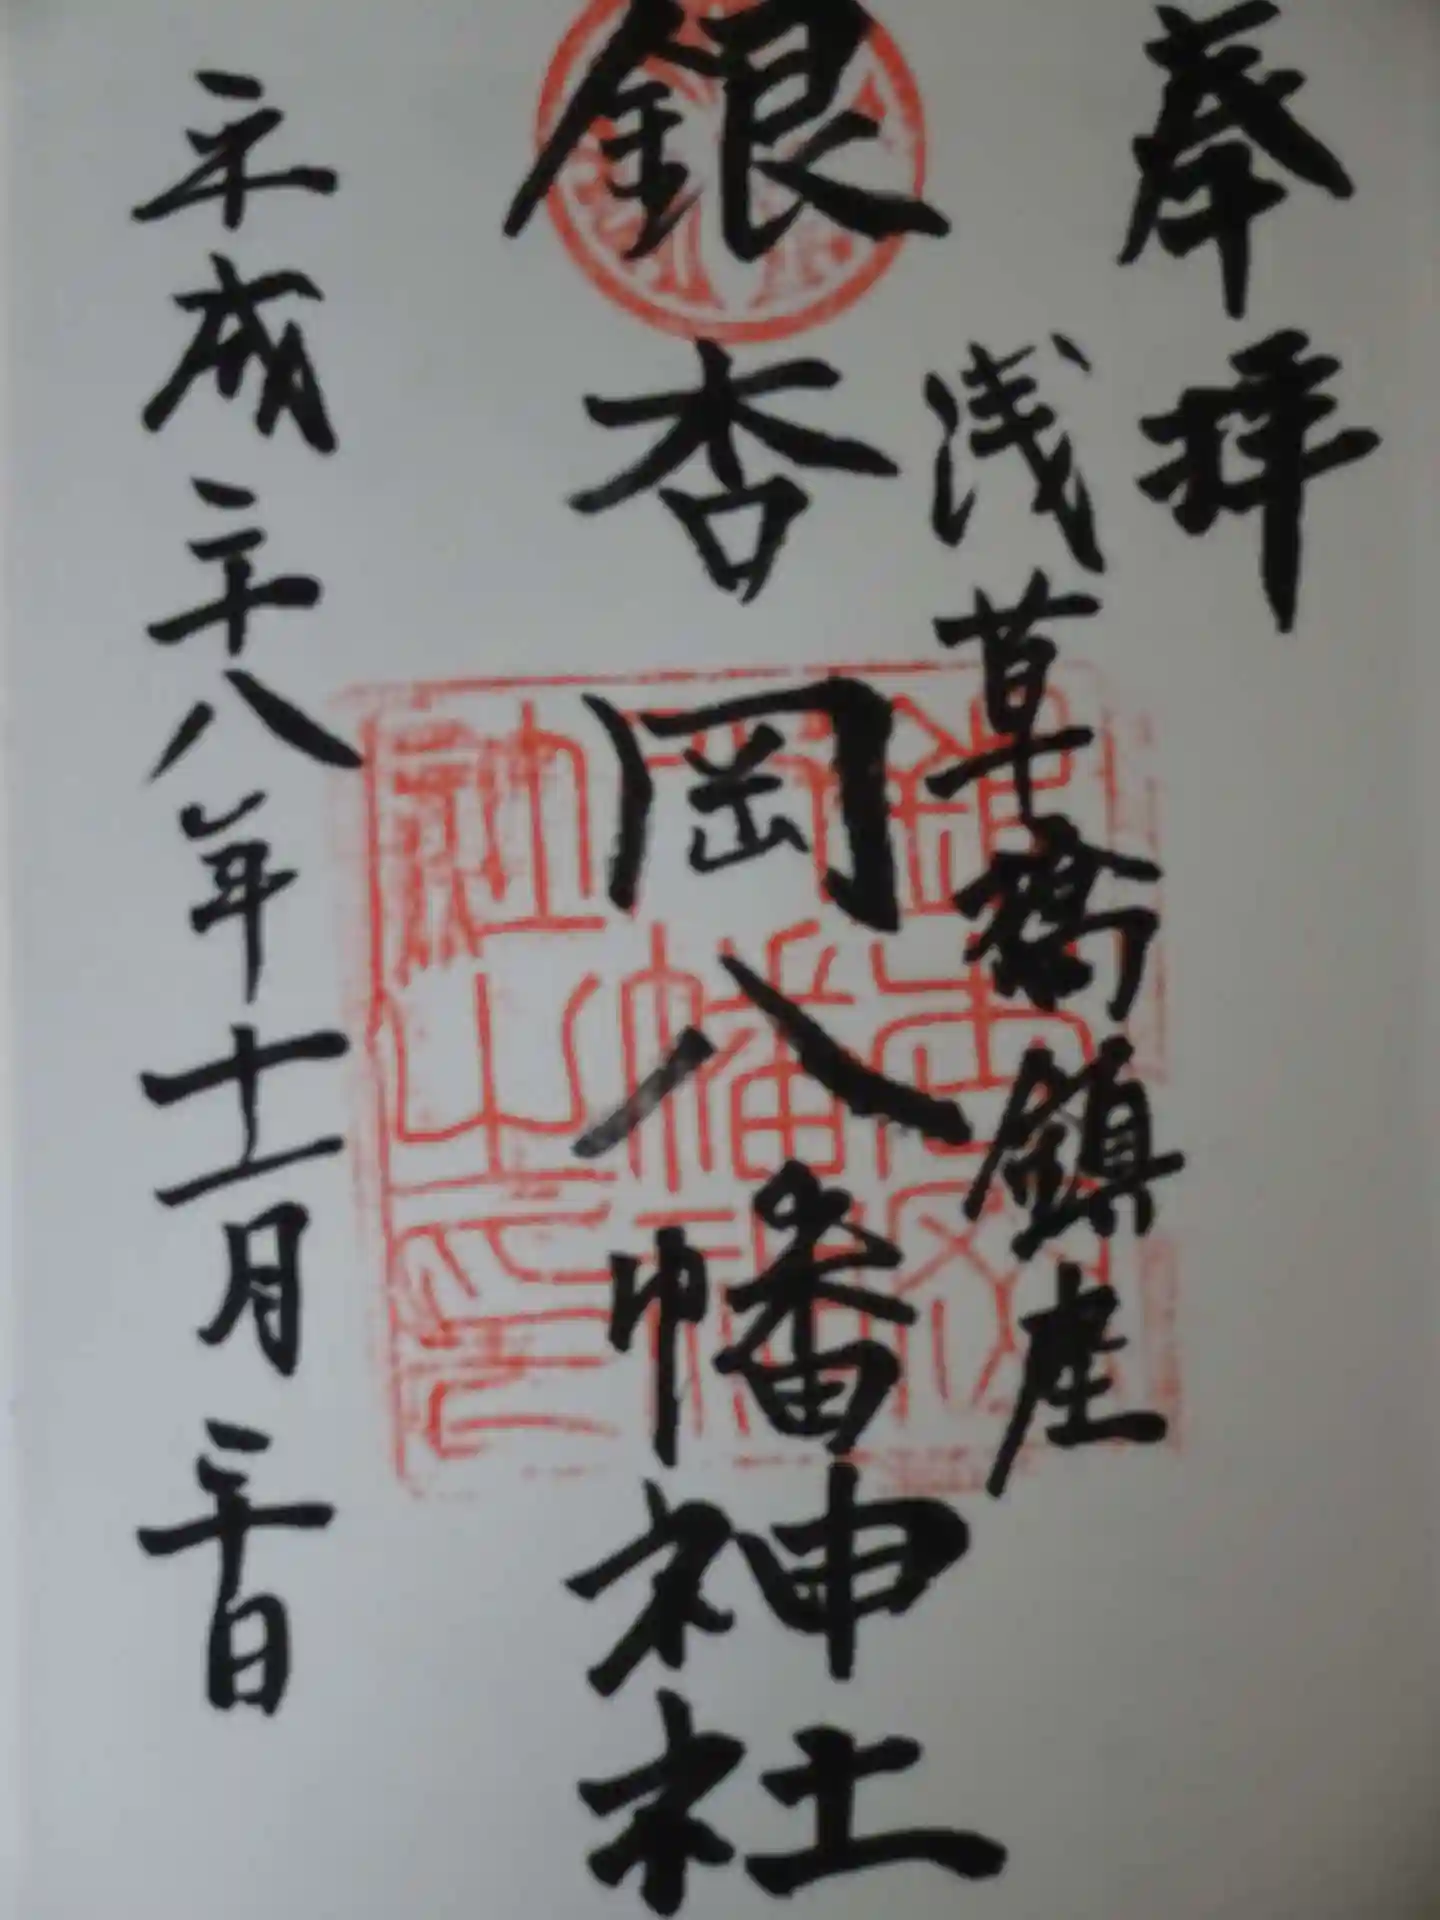 奉拝
浅草橋鎮座
銀杏岡八幡神社
平成二十八年十二月三十日